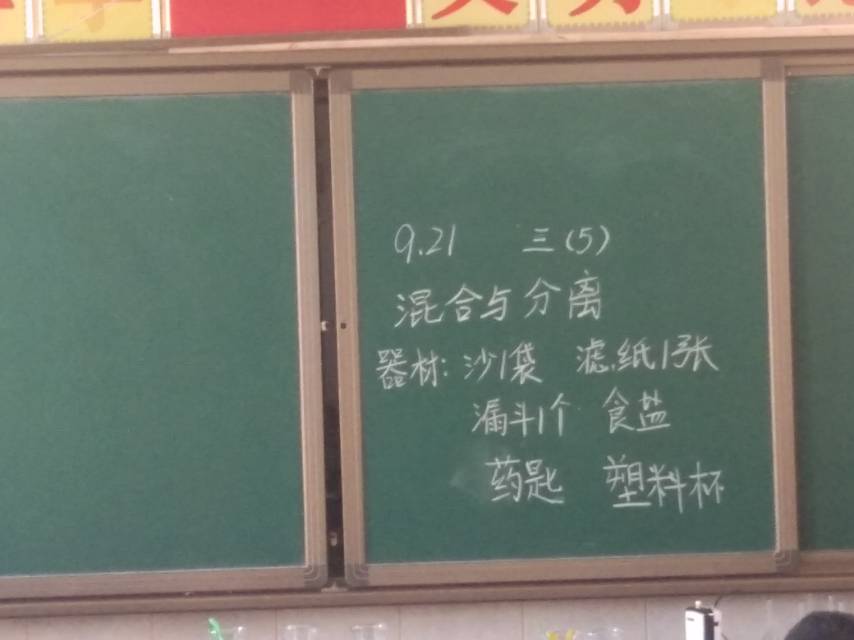 9.21 三(5)
混合与分离
器材:沙1袋 滤纸1张
漏斗1个 食盐
药匙 塑料杯